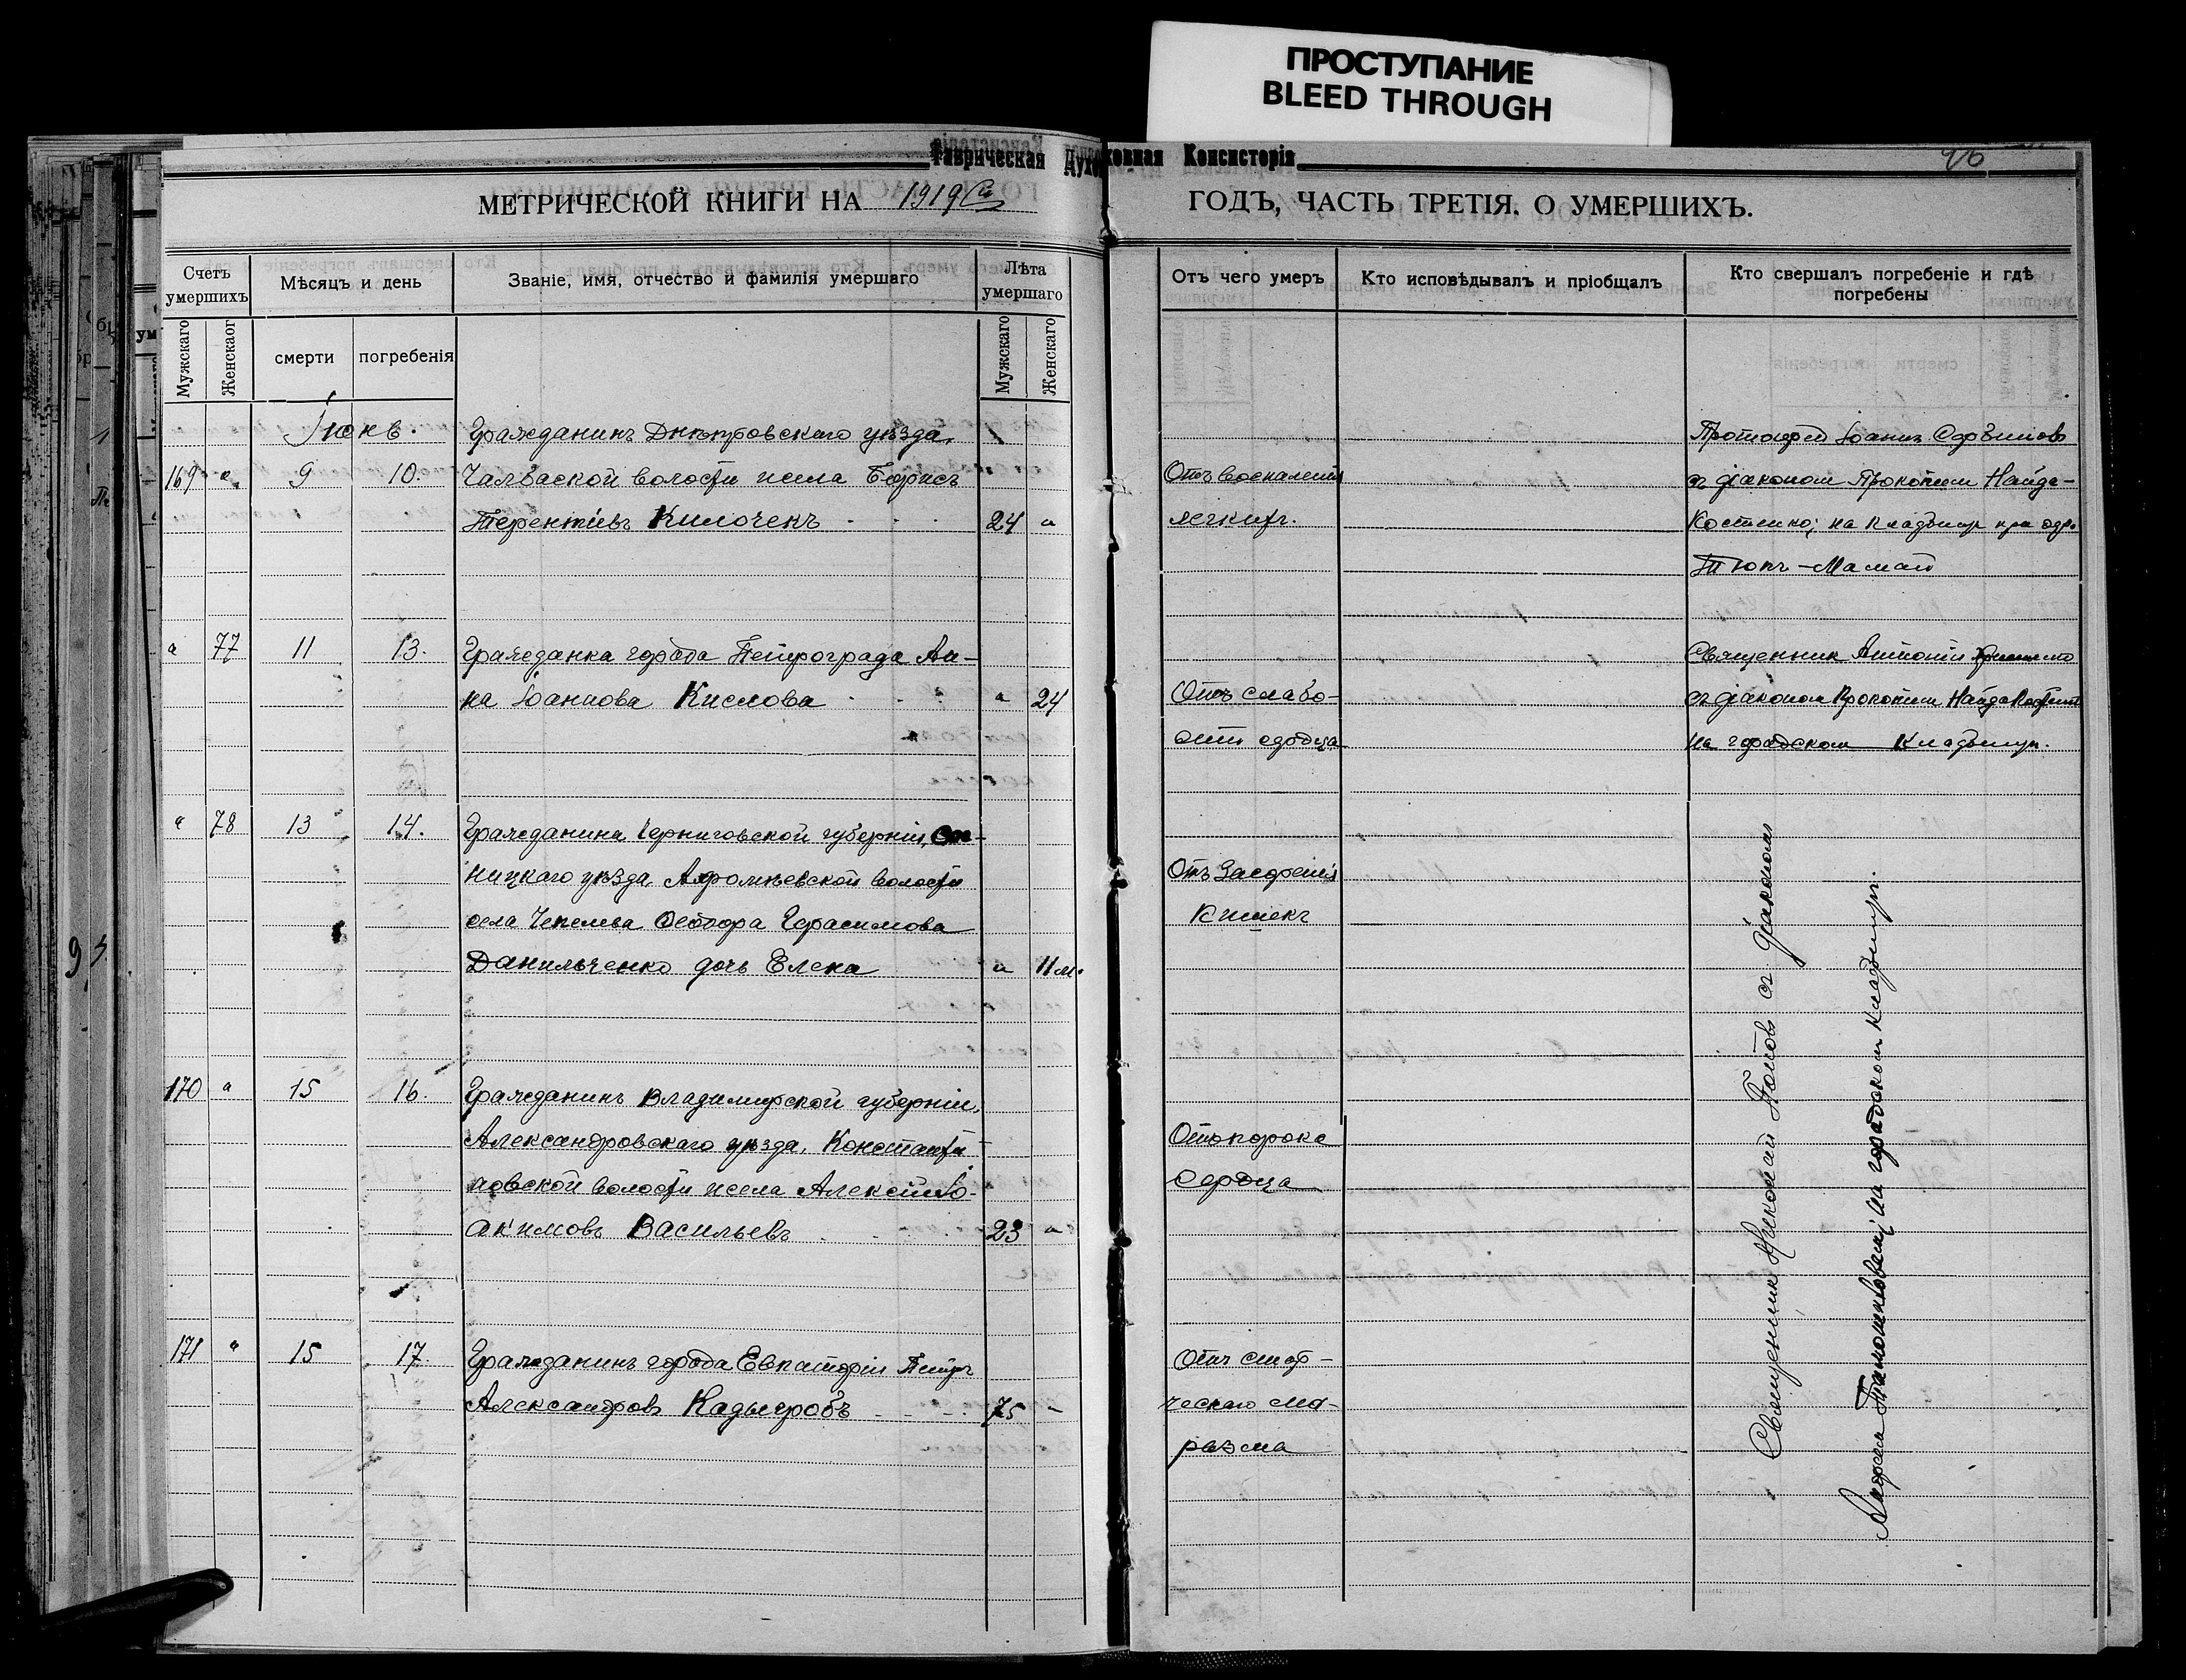 ПРОСТУПАНИЕ
BLEED THROUGH
Таврическая Духовная Консисторія
МЕТРИЧЕСКОЙ КНИГИ НА 1919
ГОДЪ, ЧАСТЬ ТРЕТІЯ. О УМЕРШИХЪ.
Счетъ умершихъ
Мѣсяцъ и день
Званіе, имя, отчество и фамилія умершаго
Лѣта умершаго
Мужскаго
Женскаог
смерти
погребенія
Мужскаго
Женскаго
Отъ чего умеръ
Кто исповѣдывалъ и пріобщалъ
Кто свершалъ погребеніе и гдѣ
погребены
Іюнь.
Гражданинъ Днѣпровскаго уѣзда,
169 " 9 10. Чалбаской волости и села Борисъ
Терентіевъ Килочекъ 24 "
Отъ воспаленія
легкихъ.
Протоіерей Іоаннъ Сербиновъ
съ діакономъ Прокопіемъ Найда-
Костенко; на кладбищѣ при дер.
Тюпъ-Мамай
" 77 11 13. Гражданка города Петрограда Ан-
на Іоаннова Кислова " 24
Отъ слабо-
сти сердца
Священник Антоній
съ діакономъ Прокопіемъ Найда
на городском кладбищѣ.
" 78 13 14. Гражданина Черниговской губерніи,
ницкаго уѣзда, волости
села Феодора Герасимова
Данильченко дочь Елена " 11 м.
Отъ Засоренія
кишекъ
170 " 15 16. Гражданинъ Владимирской губерніи,
Александровскаго уѣзда, Константи-
новской волости и села Алексѣй Іо-
акимовъ Васильевъ 23 "
Отъ порока
Сердца
171 " 15 17. Гражданинъ города Евпаторіи Петръ
Александровъ Кадыгробъ 75 -
Отъ стар-
ческаго ма-
разма
Священникъ Николай Поповъ съ діакономъ
на городском кладбищѣ.